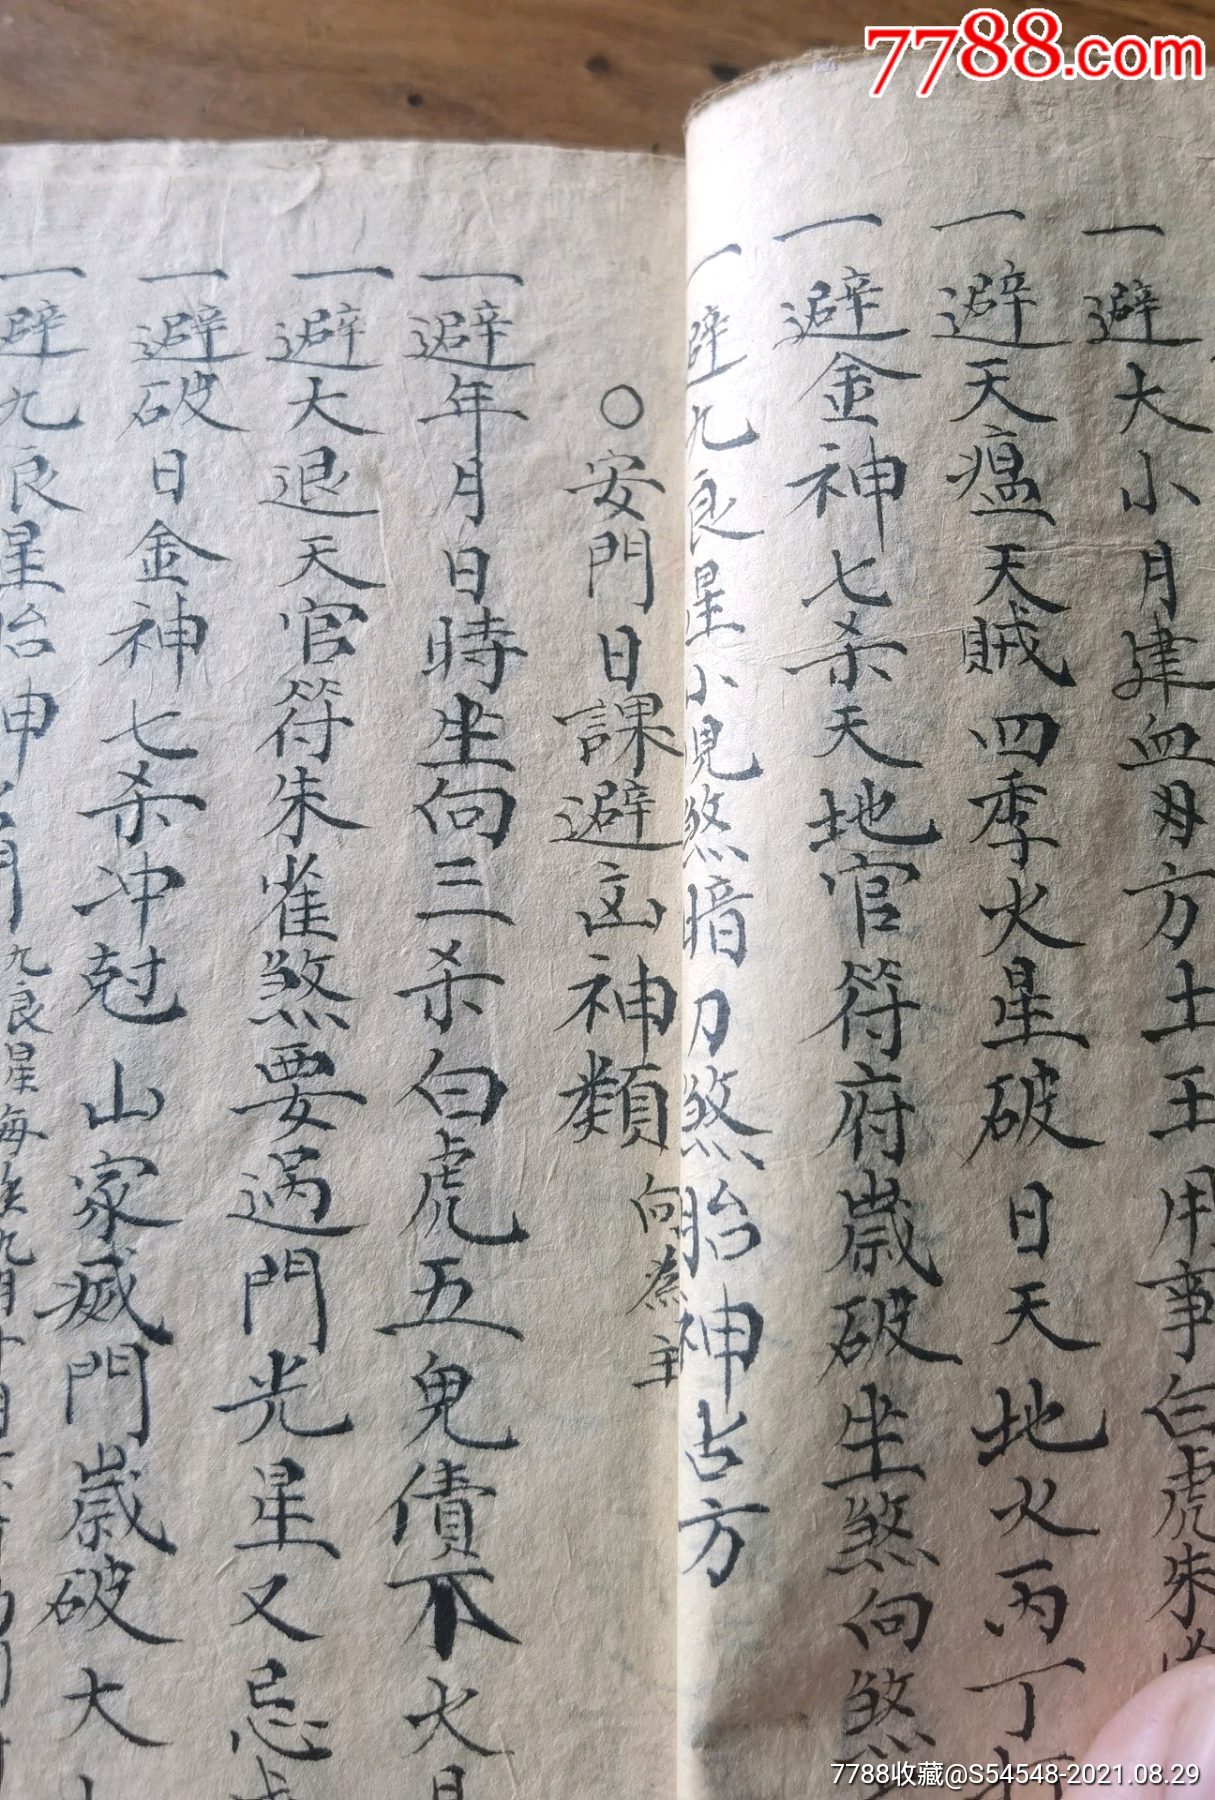 7788.com
一避大小月建血刃方土王用事白虎朱
一避天瘟天賊四季火星破日天地火丙丁
一避金神七杀天地官符府歲破坐煞向煞
一避九良星小児煞暗刀煞胎神占方
○安門日課避凶神類向為主
一避年月日時坐向三杀白虎五鬼債不火
一避大退天官符朱雀煞要遇門光星又忌
一避破日金神七杀冲尅山家滅門歲破大
一避九良星胎神
九良星每
7788收藏@S54548-2021.08.29